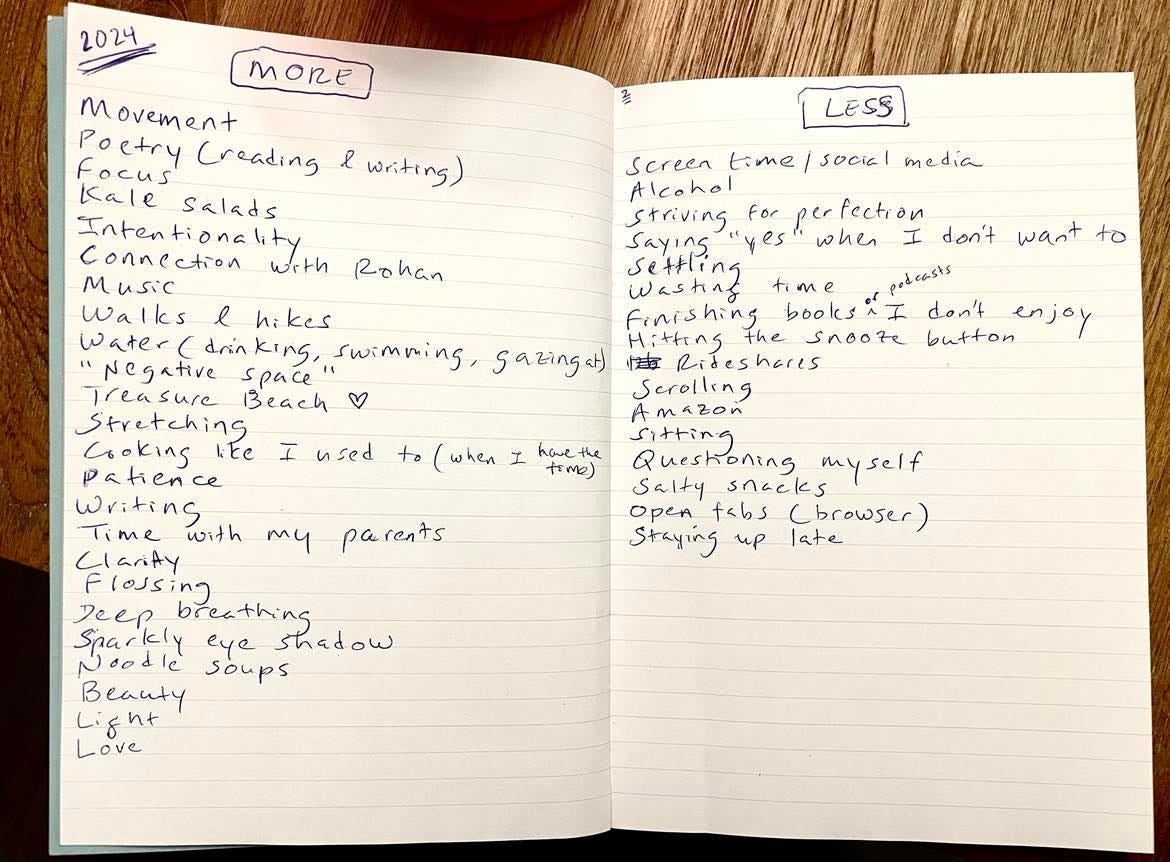 2024
MORE
Movement
Poetry (reading & writing)
Focus
Kale salads
Intentionality
Connection with Rohan
Music
Walks & hikes
Water (drinking, swimming, gazing at)
"Negative space"
Treasure Beach ♡
Stretching
Cooking like I used to (when I have the time)
Patience
Writing
Time with my parents
Clarity
Flossing
Deep breathing
Sparkly eye shadow
Noodle soups
Beauty
Light
Love
2
LESS
Screen time / social media
Alcohol
Striving for perfection
Saying "yes" when I don't want to
Settling
Wasting time
Finishing books or podcasts I don't enjoy
Hitting the snooze button
Rideshares
Scrolling
Amazon
Sitting
Questioning myself
Salty snacks
Open tabs (browser)
Staying up late